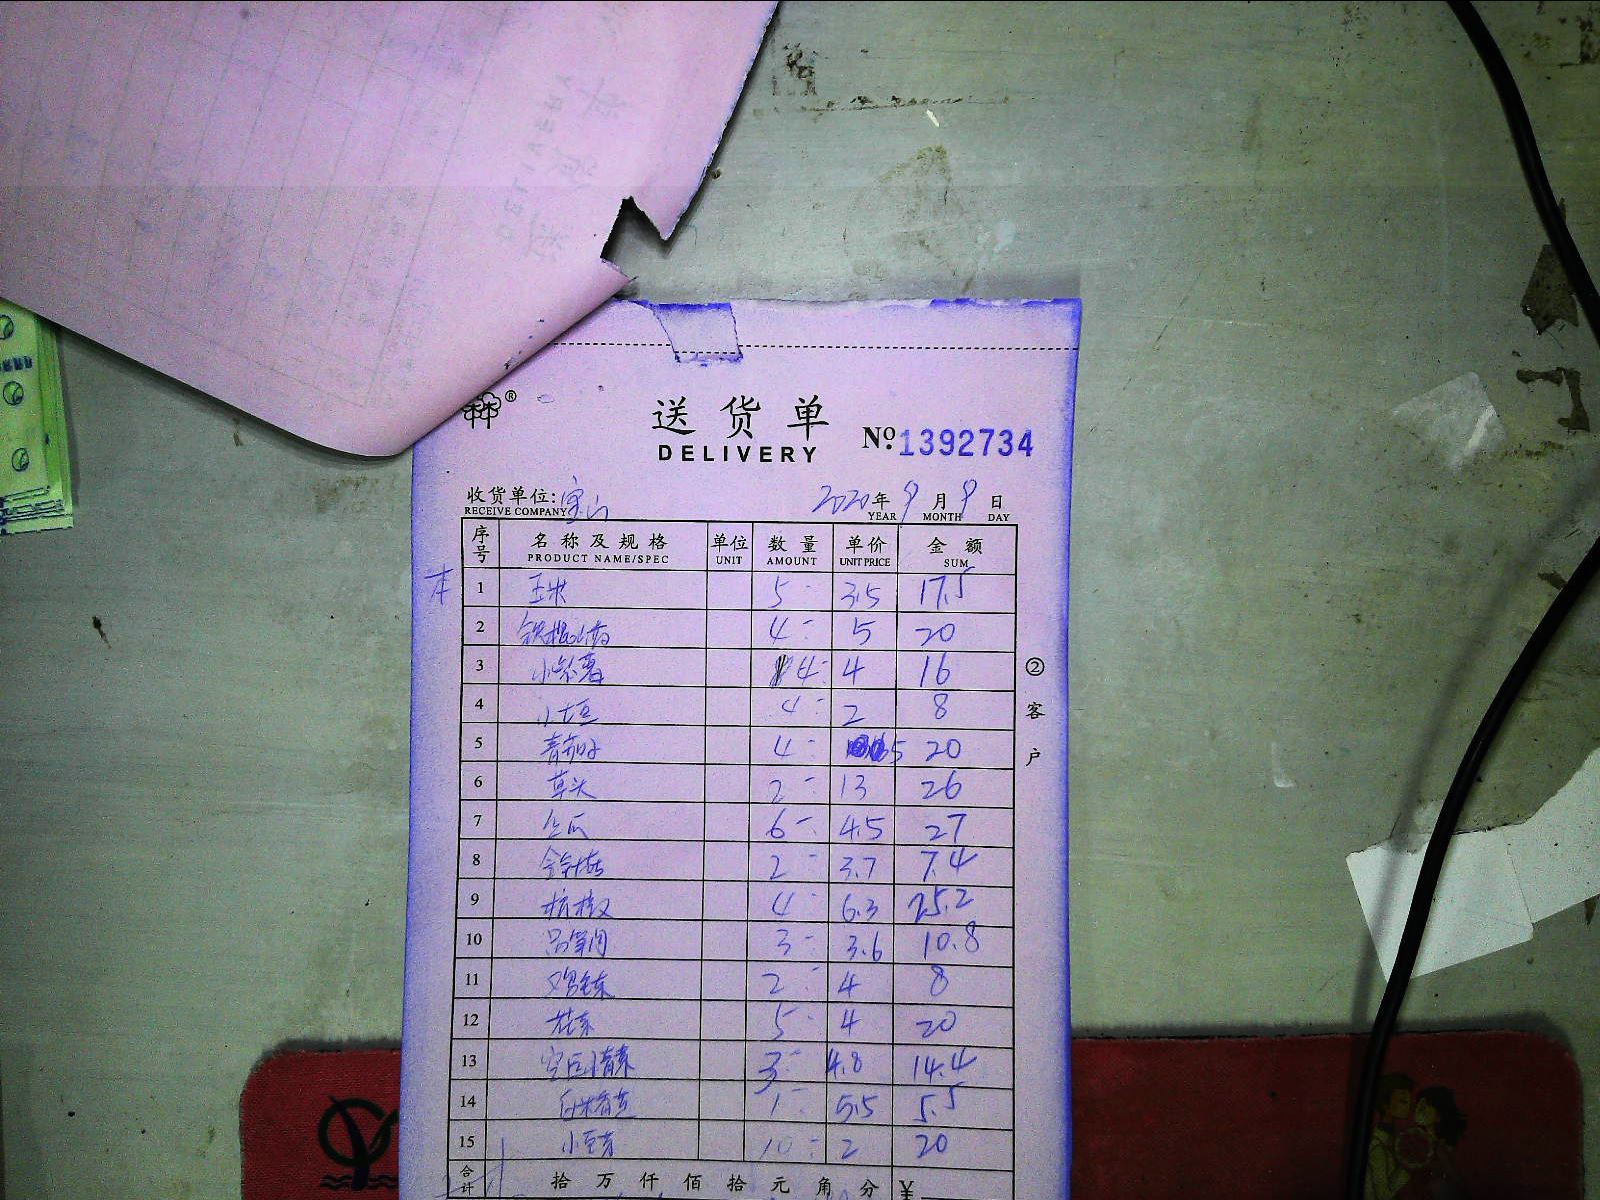 ®
送货单
DELIVERY
No.1392734
收货单位:宝山 2020年9月9日
RECEIVE COMPANY YEAR MONTH DAY
序号 名称及规格 单位 数量 单价 金额
PRODUCT NAME/SPEC UNIT AMOUNT UNIT PRICE SUM
1 玉米 5 3.5 17.5
2 铁棍山药 4 5 20
3 小紫薯 4 4 16
4 小土豆 4 2 8
5 青茄子 4 5 20
6 草头 2 13 26
7 冬瓜 6 4.5 27
8 金针菇 2 3.7 7.4
9 杭椒 4 6.3 25.2
10 3 3.6 10.8
11 2 4 8
12 花菜 5 4 20
13 3 4.8 14.4
14 白米苋 1 5.5 5.5
15 小豆芽 10 2 20
合计 拾万仟佰拾元角分 ¥
②客户